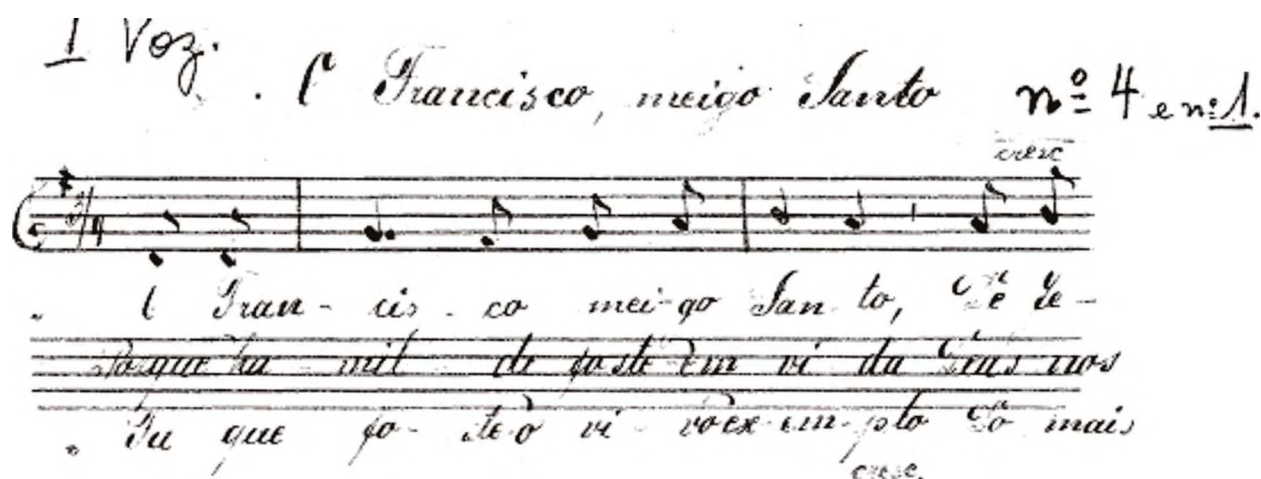 I Voz.
Ó Francisco, meigo Santo nº 4 e nº 1.
cresc
3/4
Ó Fran - cis - co mei - go San - to, De
Porque hu - mil de foste em vi da Deus nos
Tu que fo - ste o vi - vo ex - em - plo Do mais
cresc.